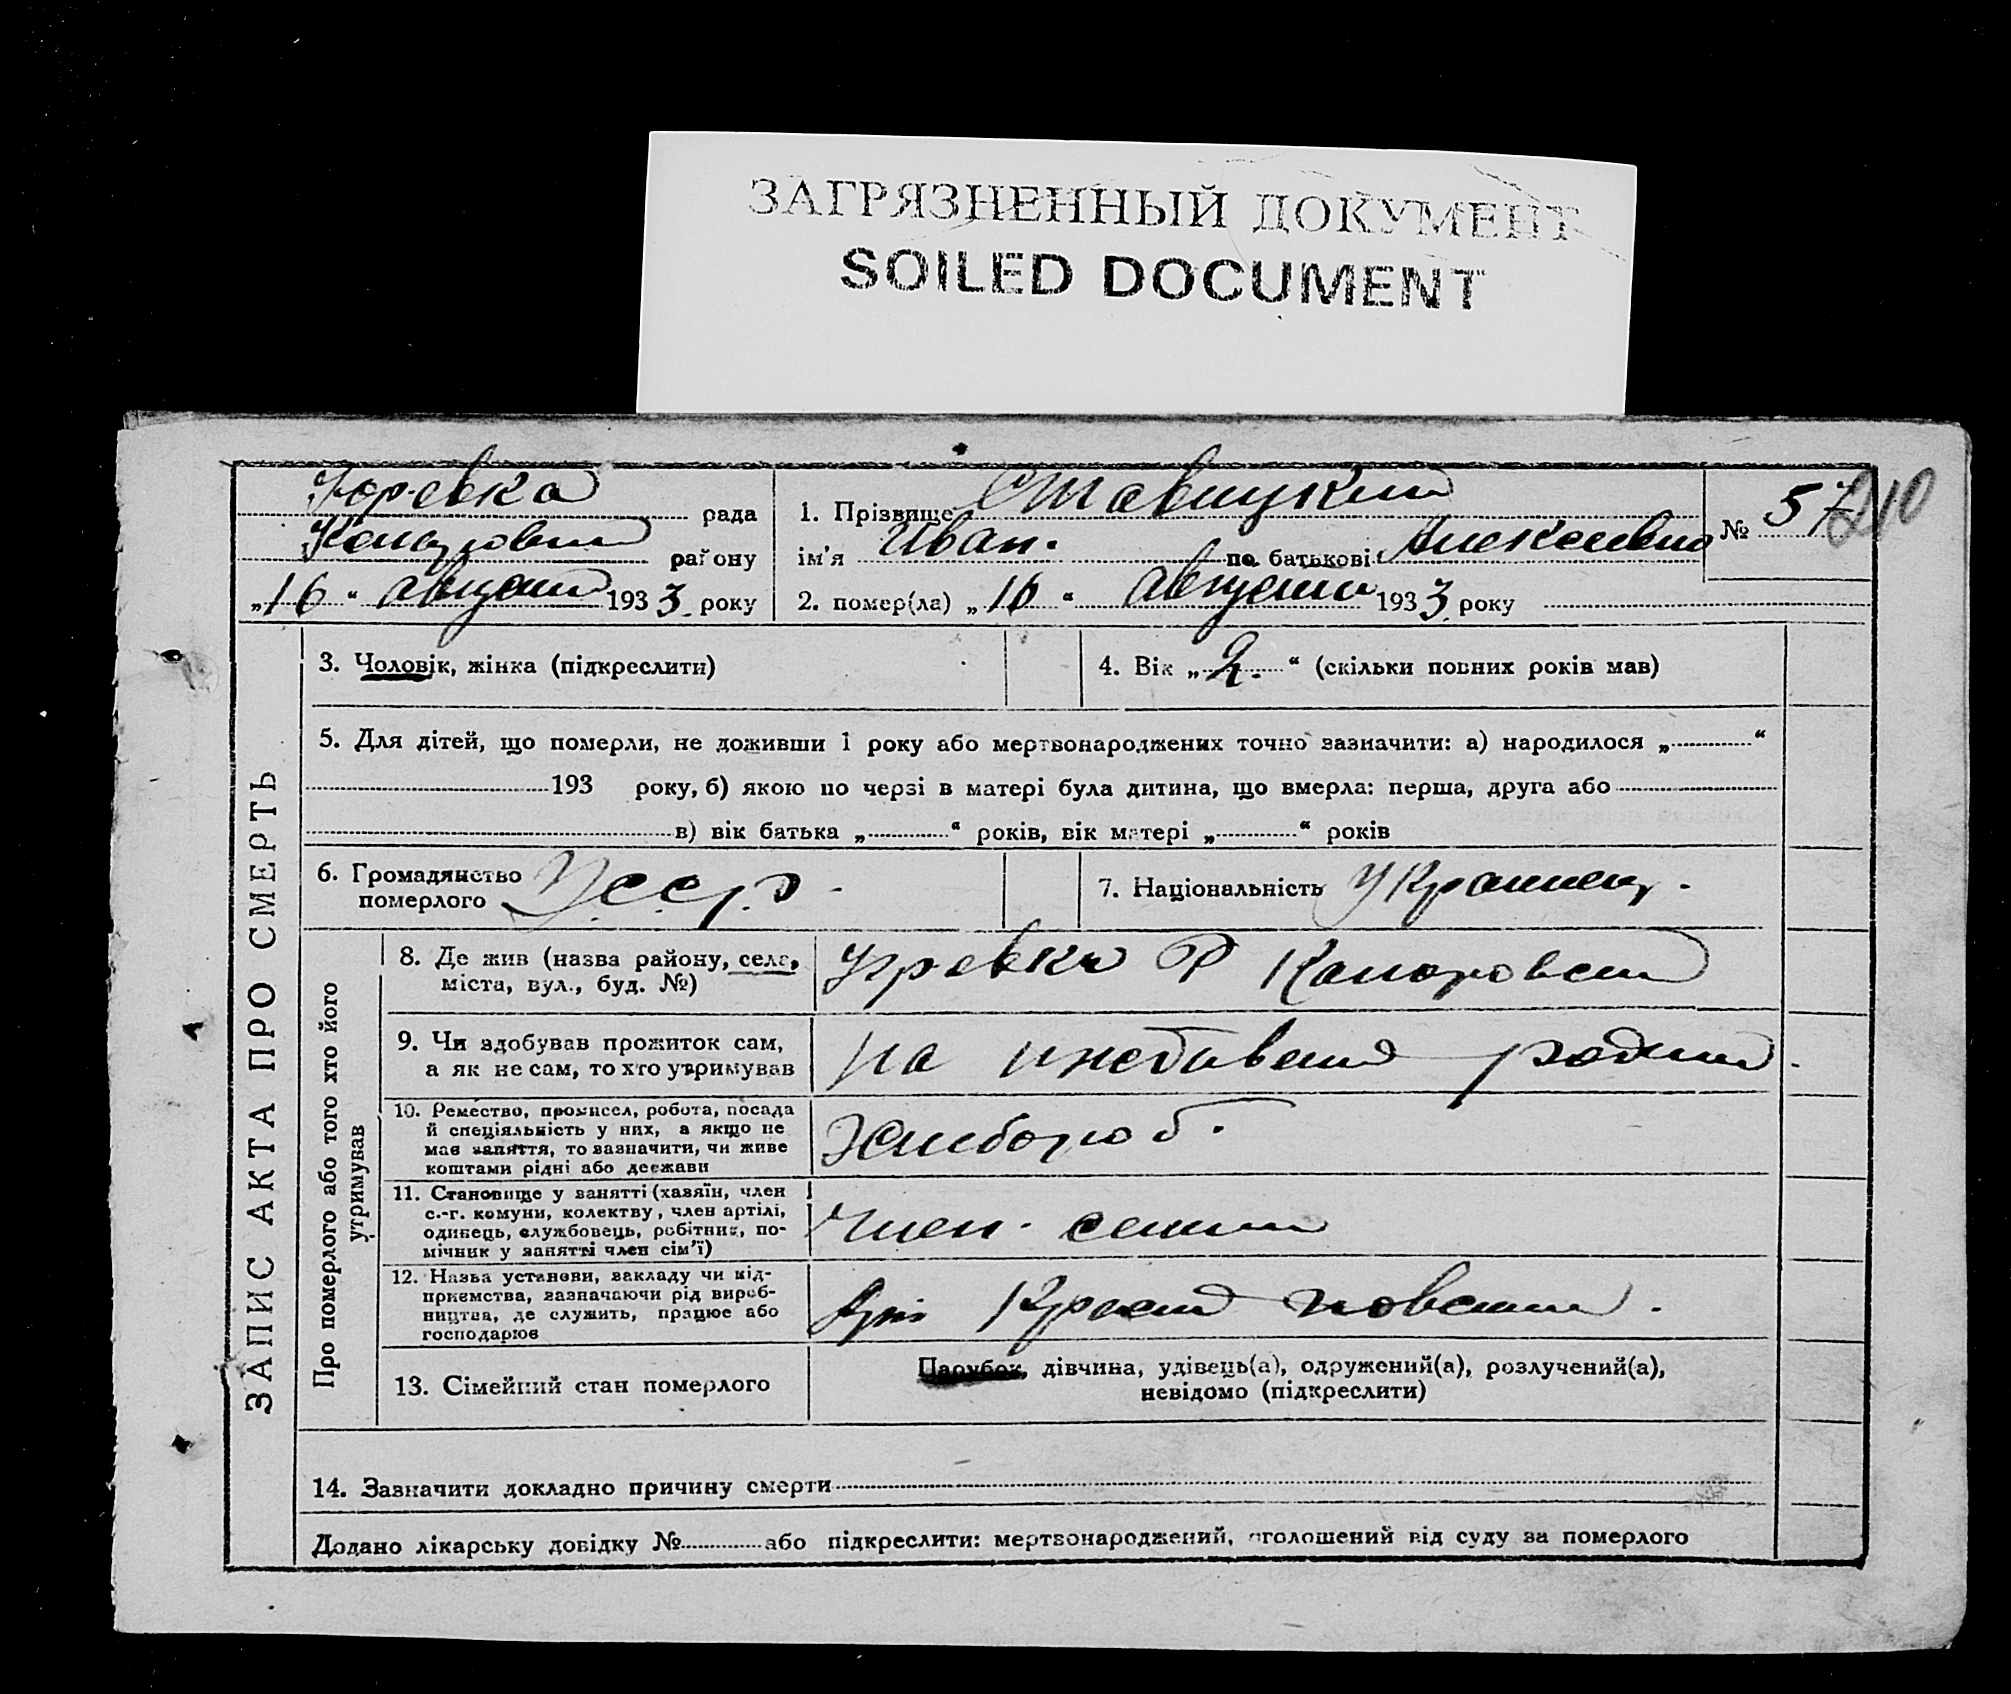 ЗАГРЯЗНЕННЫЙ ДОКУМЕНТ
SOILED DOCUMENT
Юревка рада
району
„16“ августа 1933 року
1. Прізвище Ставицкий
ім'я Иван. по батькові Алексеевич
№ 57
210
2. помер(ла) „16“ августа 1933 року
ЗАПИС АКТА ПРО СМЕРТЬ
3. Чоловік, жінка (підкреслити)
4. Вік „2.“ (скільки повних років мав)
5. Для дітей, що померли, не доживши 1 року або мертвонароджених точно зазначити: а) народилося „ “
193 року, б) якою по черзі в матері була дитина, що вмерла: перша, друга або
в) вік батька „ “ років, вік матері „ “ років
6. Громадянство
померлого
У.С.С.Р.
7. Національність Украинец.
Про померлого або того хто його
утримував
8. Де жив (назва району, села,
міста, вул., буд. №)
Юревка Р
9. Чи здобував прожиток сам,
а як не сам, то хто утримував
на
10. Ремество, промисел, робота, посада
й спеціяльність у них, а якщо не
має заняття, то зазначити, чи живе
коштами рідні або держави
Хлебороб.
11. Становище у занятті (хазяїн, член
с.-г. комуни, колектву, член артілі,
одинець, службовець, робітник, по-
мічник у занятті член сім'ї)
член семьи
12. Назва установи, закладу чи під-
приємства, зазначаючи рід вироб-
ництва, де служить, працює або
господарює
13. Сімейний стан померлого
Парубок, дівчина, удівець(а), одружений(а), розлучений(а),
невідомо (підкреслити)
14. Зазначити докладно причину смерти
Додано лікарську довідку № або підкреслити: мертвонароджений, оголошений від суду за померлого